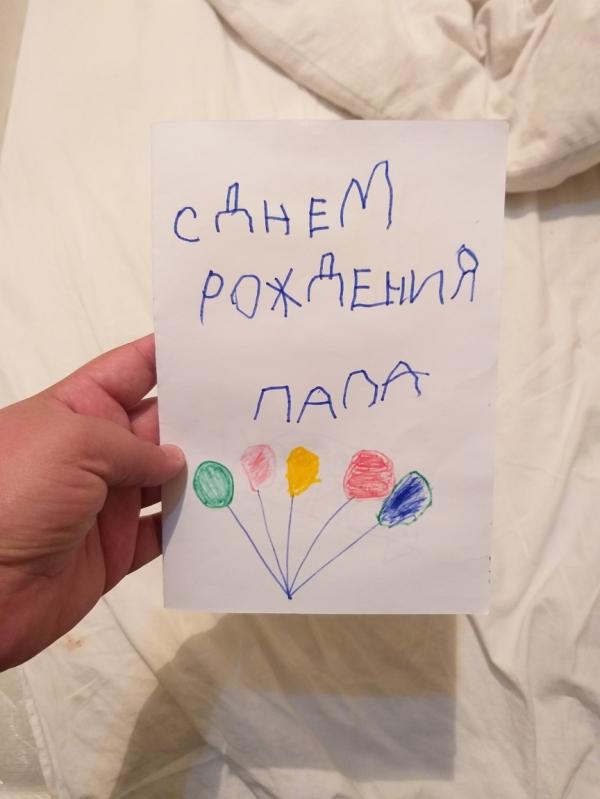 С ДНЕМ
РОЖДЕНИЯ
ПАПА